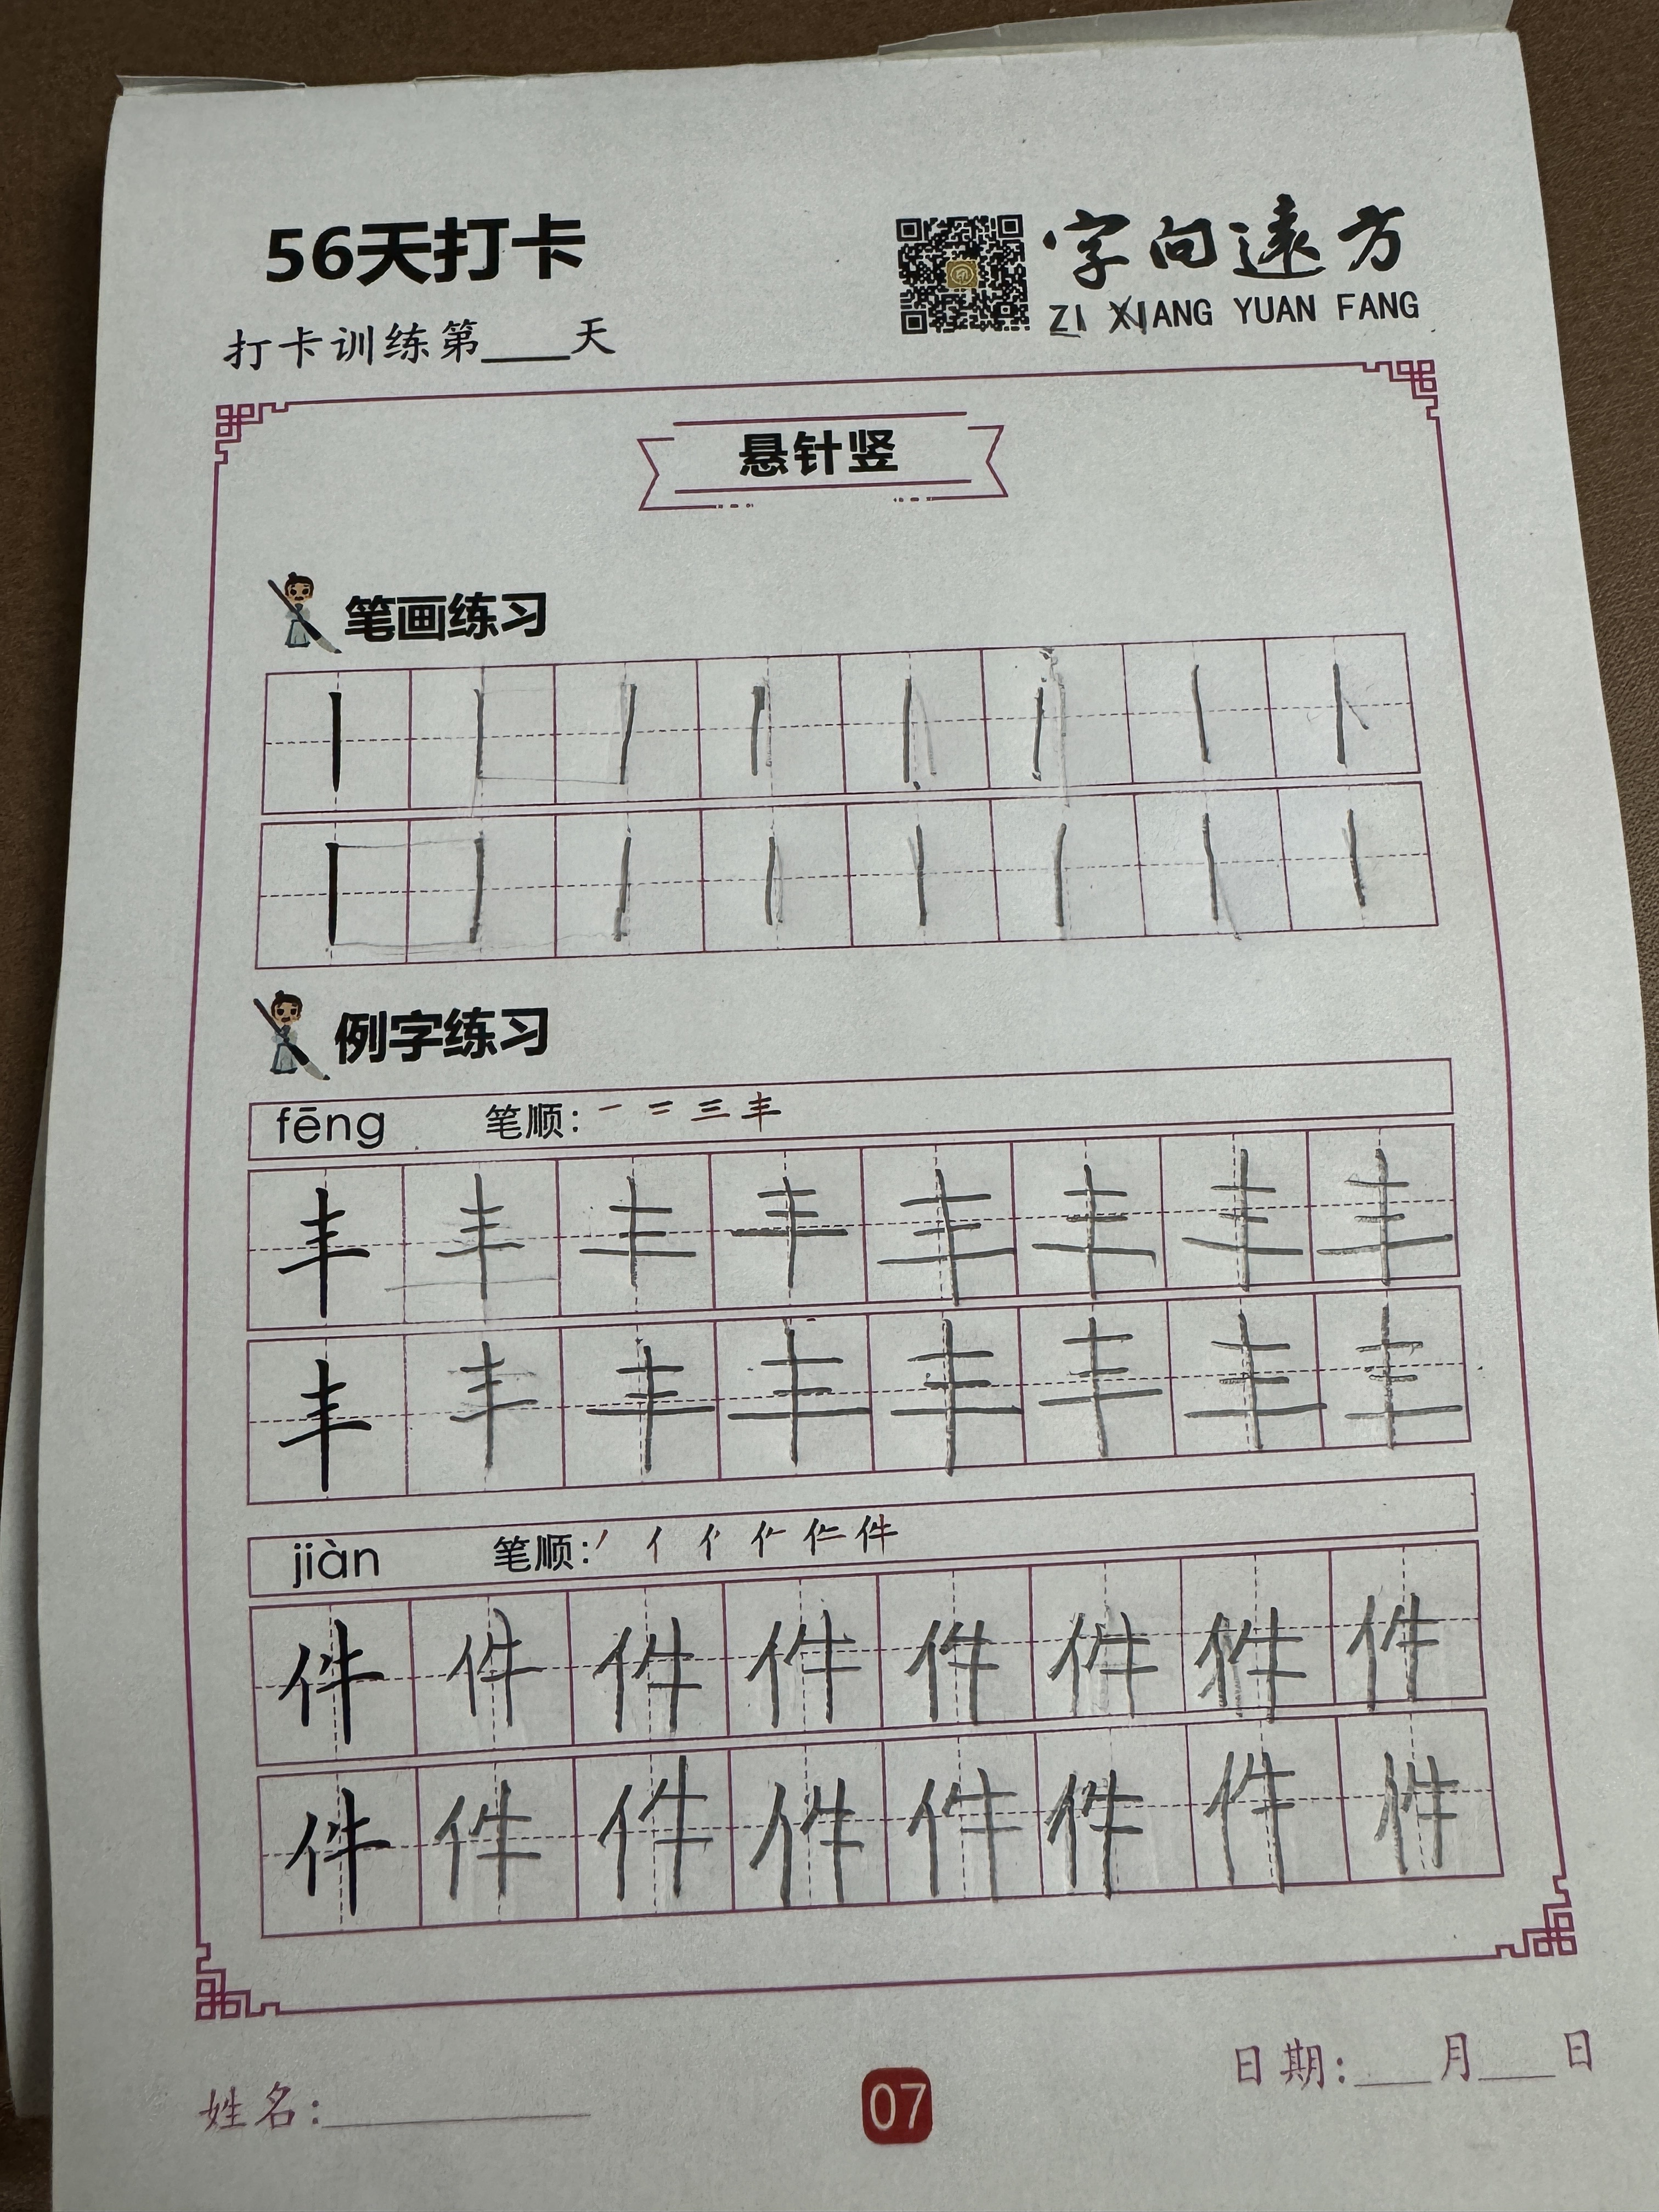 56天打卡
字向遠方
ZI XIANG YUAN FANG
打卡训练第____天
悬针竖
笔画练习
丨 丨 丨 丨 丨 丨 丨 丨
丨 丨 丨 丨 丨 丨 丨 丨
例字练习
fēng 笔顺: 一 二 三 丰
丰 丰 丰 丰 丰 丰 丰 丰
丰 丰 丰 丰 丰 丰 丰 丰
jiàn 笔顺: 件
件 件 件 件 件 件 件 件
件 件 件 件 件 件 件 件
姓名:________
07
日期:___月___日